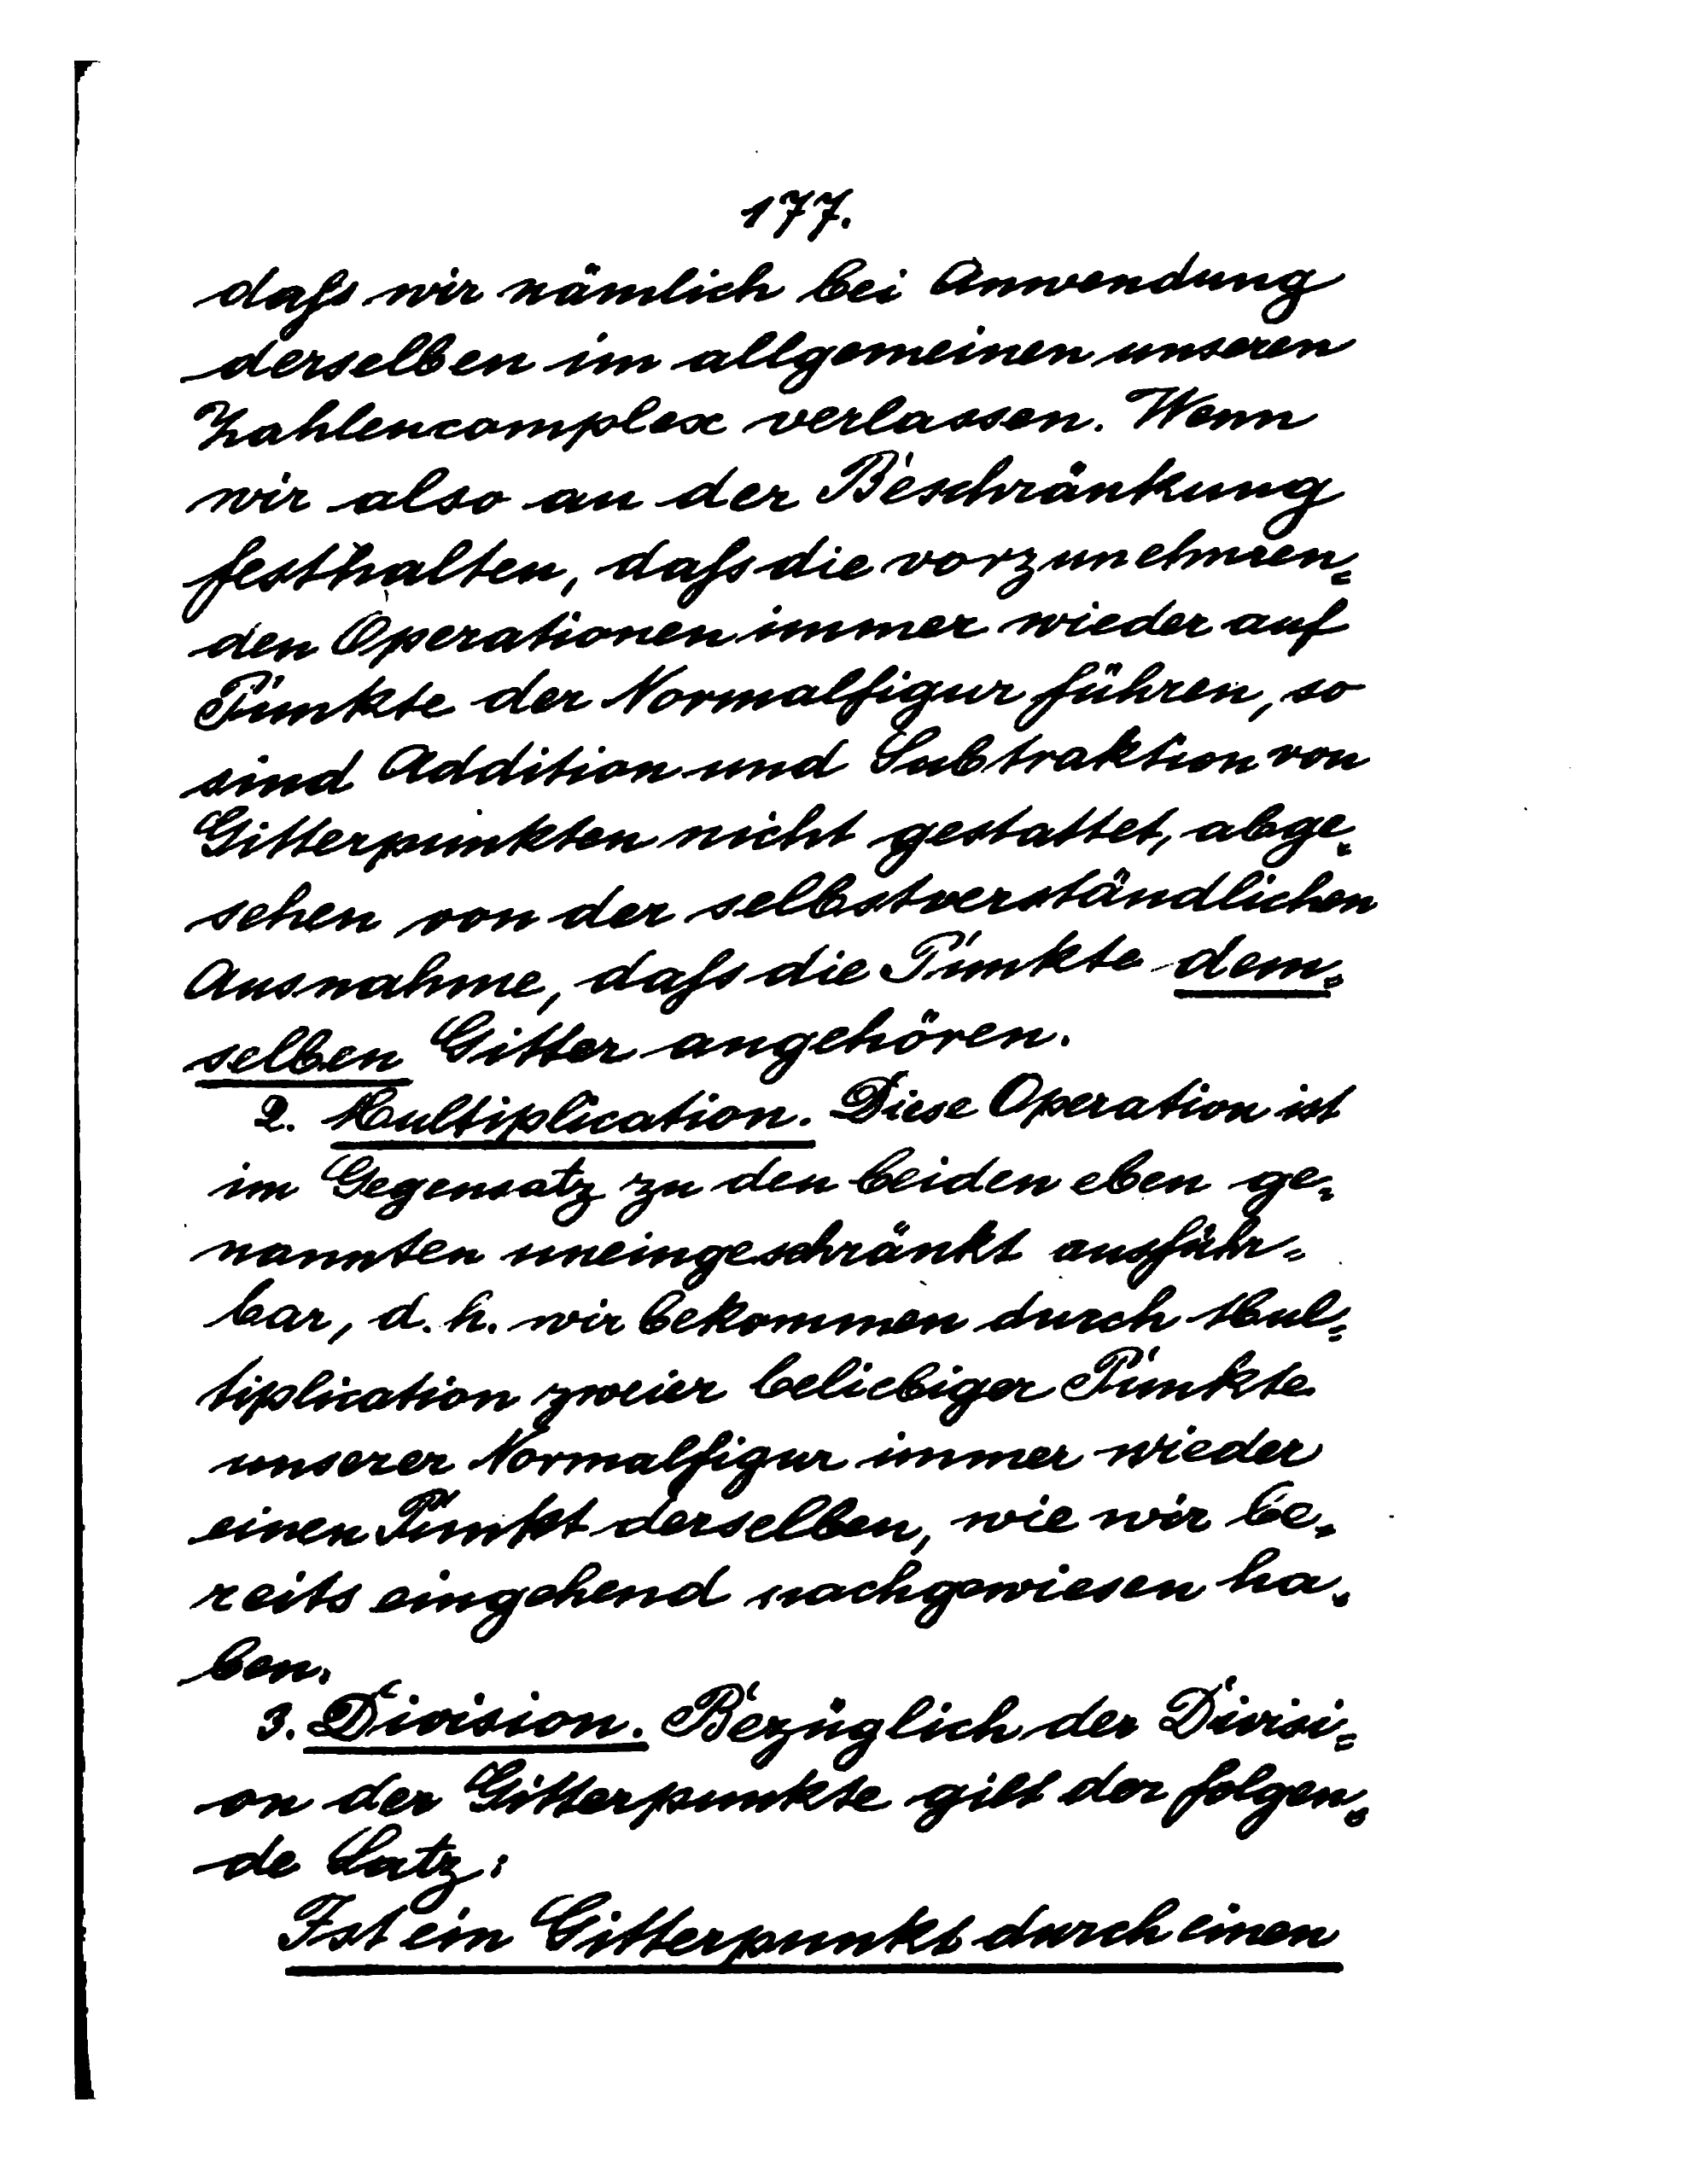 177.
dafs wir nämlich bei Anwendung
derselben im allgemeinen unseren
Zahlencomplex verlassen. Wenn
wir also an der Beschränkung
festhalten, dafs die vorzunehmen=
den Operationen immer wieder auf
Punkte der Normalfigur führen, so
sind Addition und Subtraktion von
Gitterpunkten nicht gestattet, abge=
sehen von der selbstverständlichen
Ausnahme, dafs die Punkte dem=
selben Gitter angehören.
2. Multiplication. Diese Operation ist
im Gegensatz zu den beiden eben ge=
nannten uneingeschränkt ausführ=
bar, d. h. wir bekommen durch Mul=
tiplication zweier beliebiger Punkte
unserer Normalfigur immer wieder
einen Punkt derselben, wie wir be=
reits eingehend nachgewiesen ha=
ben.
3. Division. Bezüglich der Divisi=
on der Gitterpunkte gilt der folgen=
de Satz:
Ist ein Gitterpunkt durch einen